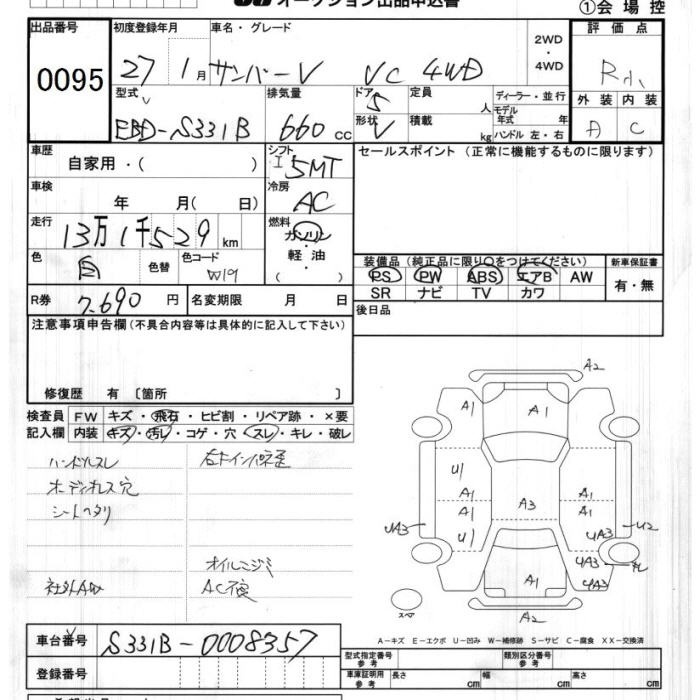 オークション出品申込書
①会 場 控
出品番号 初度登録年月 車名・グレード 2WD・4WD 評価点
0095 27年 1月 サンバーV VC 4WD R小
型式 排気量 ドア 5 定員 人 ディーラー・並行 外装 内装
EBD-S331B 660cc 形状 V 積載 kg モデル年式 年 ハンドル 左・右 A C
車歴 自家用・( ) シフト I 5MT セールスポイント (正常に機能するものに限ります)
車検 年 月( 日) 冷房 AC
走行 13万1千529km 燃料 ガソリン・軽油・( )
色 白 色替 色コード W19
装備品 (純正品に限り○をつけてください) 新車保証書
PS PW ABS エアB AW 有・無
SR ナビ TV カワ
R券 7,690円 名変期限 月 日 後日品
注意事項申告欄(不具合内容等は具体的に記入して下さい)
修復歴 有 〔箇所 〕
検査員 FW キズ・飛石・ヒビ割・リペア跡・×要
記入欄 内装 キズ・汚レ・コゲ・穴・スレ・キレ・破レ
ハンドルスレ
オーディオレス穴
シートヘタリ
社外AW
オイルニジミ
AC不良
A2
A1 A1
U1 A1 A3 A1
A1 A1
UA3 U1 UA3 U2
UA3
A1 UA3
スペア A2
A-キズ E-エクボ U-凹み W-補修跡 S-サビ C-腐食 XX-交換済
車台番号 S331B-0008357
登録番号
型式指定番号 参考 類別区分番号 参考
車庫証明用 参考 長さ cm 幅 cm 高さ cm